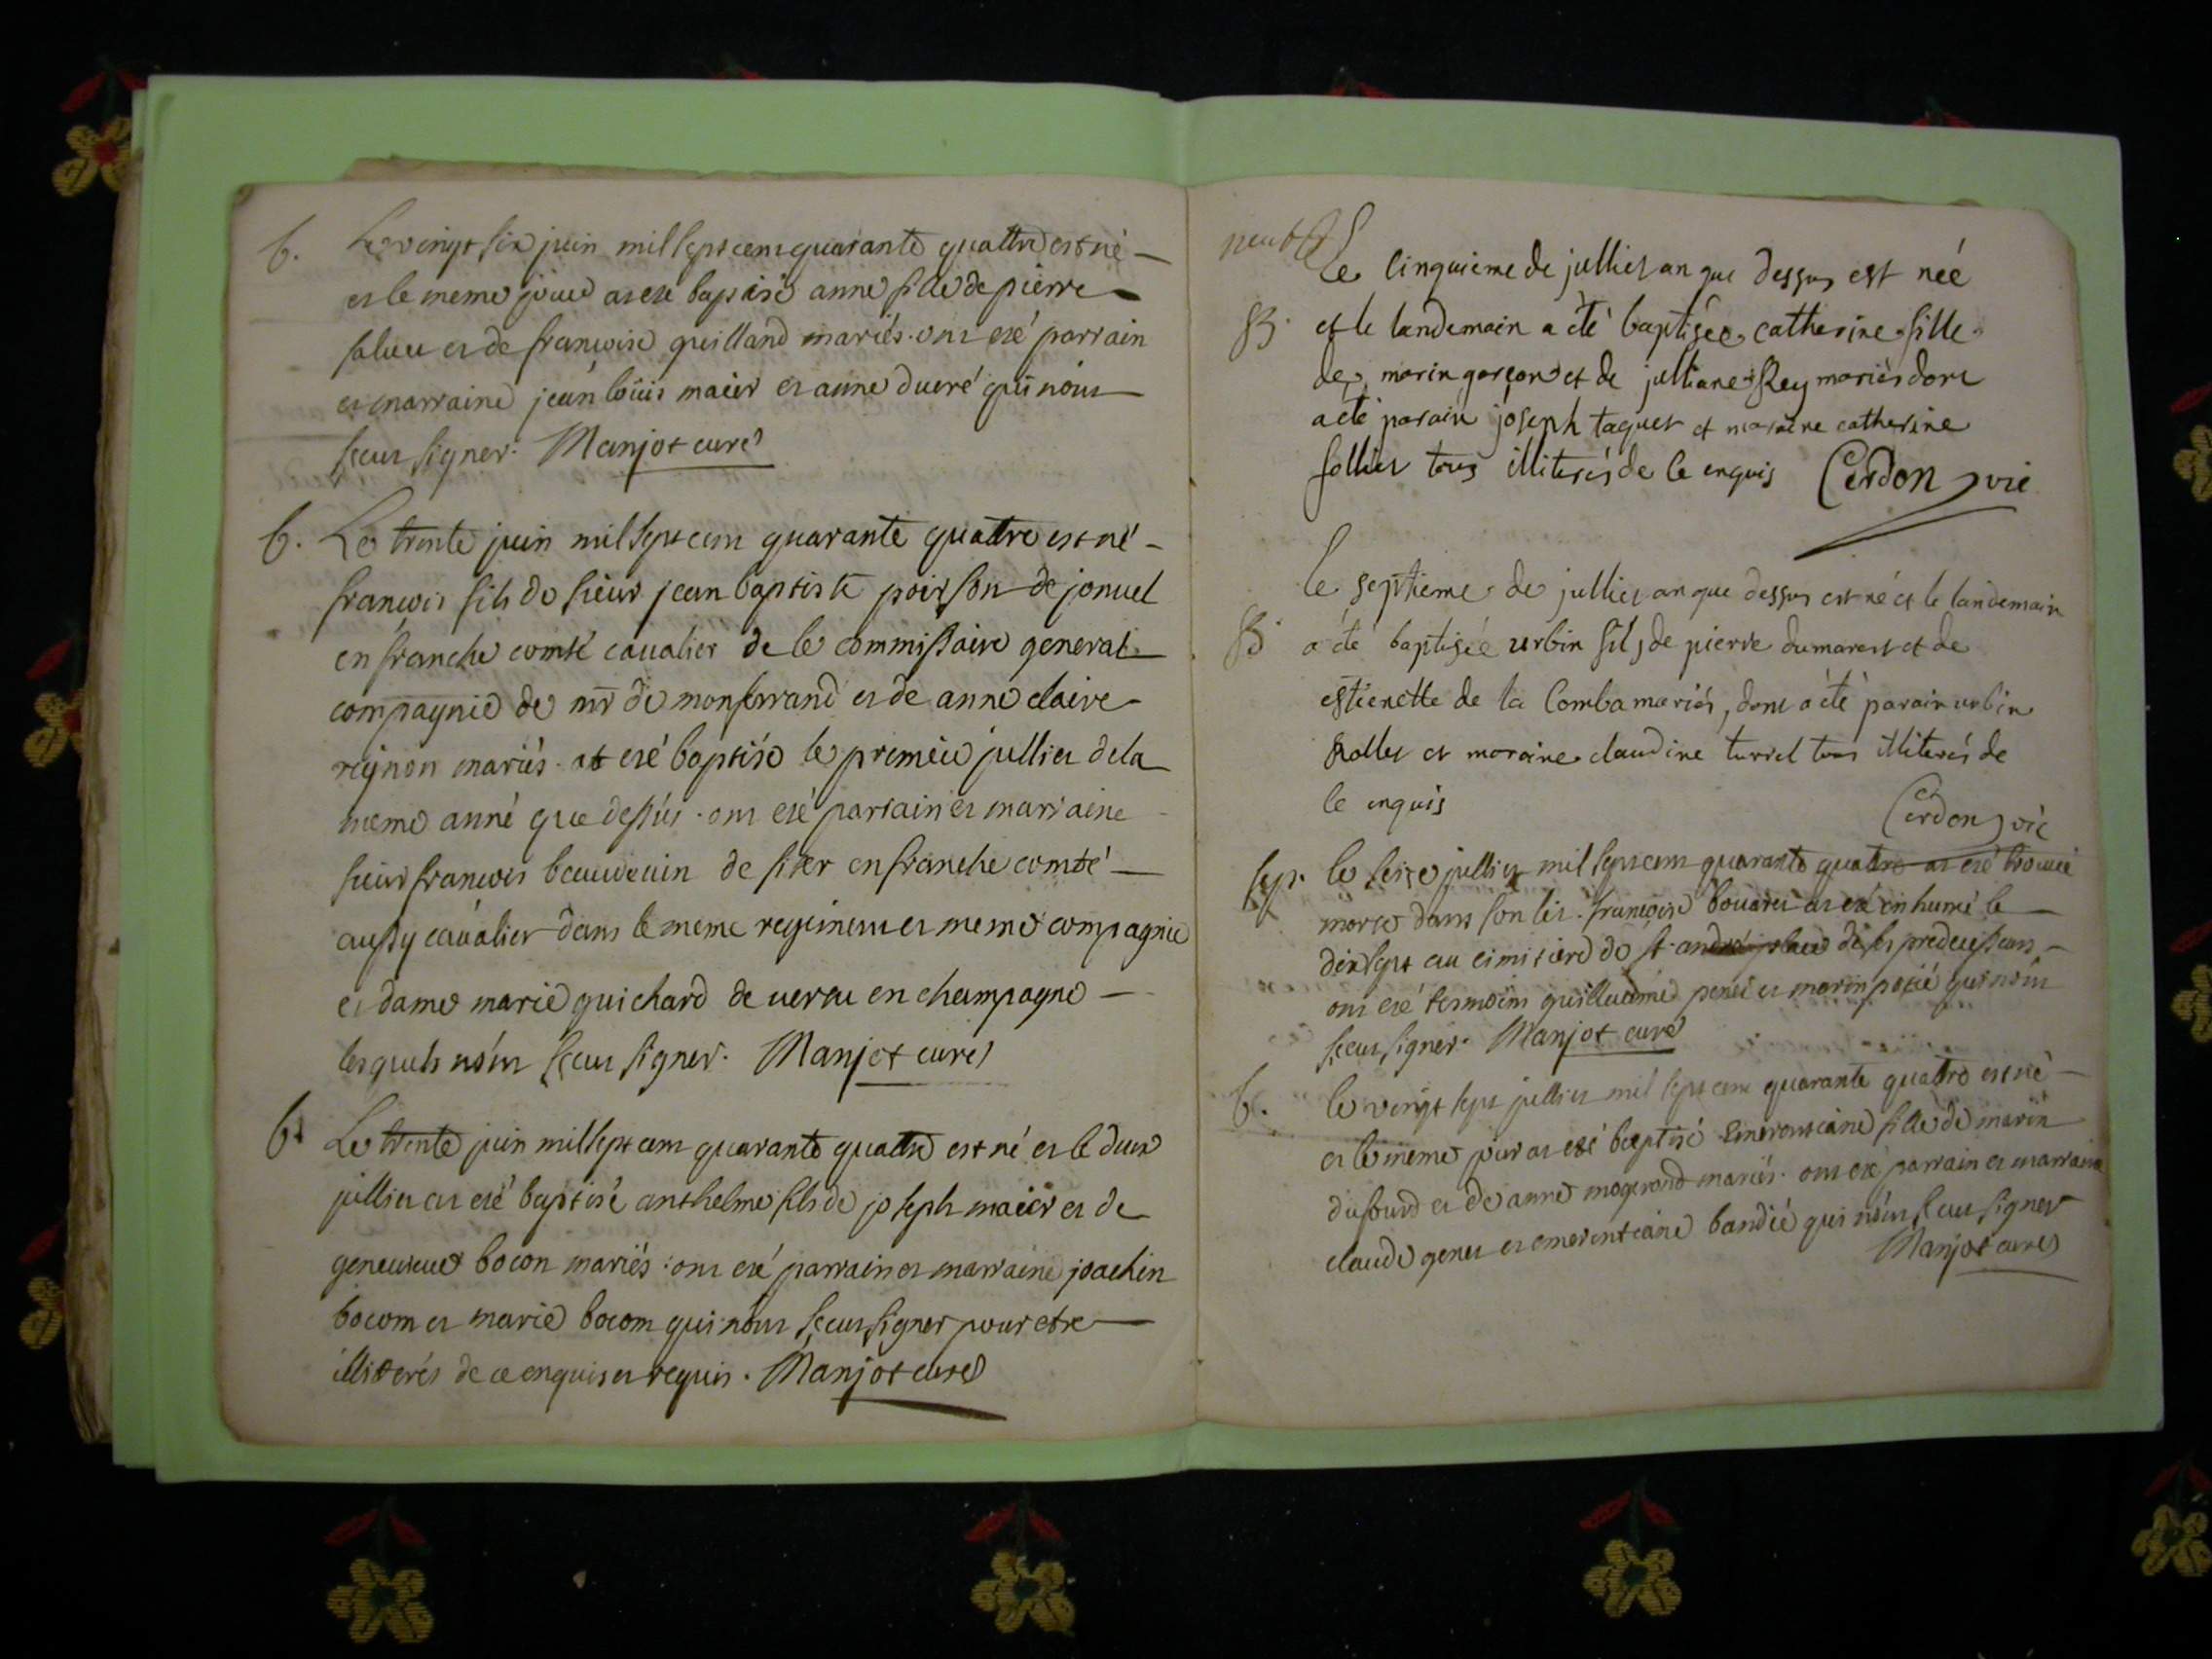 b. Le vingt six juin mil sept cent quarante quattre est né
et le meme jour at eté baptisé anne fille de pierre
et de françoise guilland mariés. ont eté parrain
et marraine jean loüis maier et anne ducré qui n'ont
sceut signer. Manjot curé
b. Le trente juin mil sept cent quarante quattre est né
françois fils de sieur jean baptiste poisson de jonuel
en franche comté caualier de le commissaire general
compagnie de mr de monferrand et de anne claire
reynon mariés. at eté baptisé le premier jullier de la
meme anné que dessus. ont eté parrain et marraine
sieur françois de en franche comté
aussy caualier dans le meme regiment et meme compagnie
et dame marie guichard de uertu en champagne
lesquels n'ont sceut signer. Manjot curé
b. Le trente juin mil sept cent quarante quattre est né et le deux
jullier at eté baptisé anthelme fils de joseph maier et de
geneuieue bocon mariés. ont eté parrain et marraine joachin
bocom et marie bocom qui n'ont sceut signer pour etre
illiterés de ce enquis et requis. Manjot curé
Le cinquieme de jullier an que dessus est néé
B. et le landemain a été baptisée catherine fille
de marin garçon et de julliane Rey mariés dont
a été parain joseph taquet et maraine catherine
sollier tous illiterés de le enquis Cerdon vic
le septieme de jullier an que dessus est né et le landemain
B. a été baptisée urbin fils de pierre dumarest et de
estienette de la Comba mariés, dont a été parain urbin
et maraine claudine turrel tous illiterés de
le enquis Cerdon vic
sep. le seize jullier mil sept cent quarante quatre at eté trouué
morte dans son lit. françoise at eté inhumé le
dix sept au cimitierd de st andré de ses predecesseurs
ont eté tesmoins guilleaume et marin qui n'ont
sceut signer. Manjot curé
b. le vingt sept jullier mil sept cent quarante quatre est né
et le meme jour at eté baptisé emerentiane fille de marin
dufourd et de anne mogerond mariés. ont eté parrain et marraine
claude genet et emerentiane bandié qui n'ont sceut signer
Manjot curé